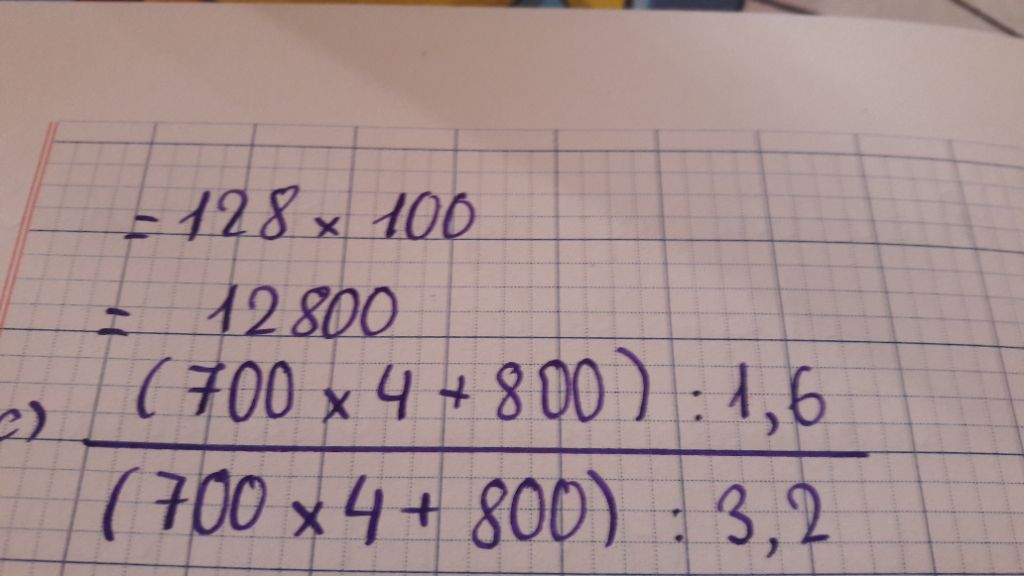 = 128 x 100
= 12800
c) (700 x 4 + 800) : 1,6
(700 x 4 + 800) : 3,2